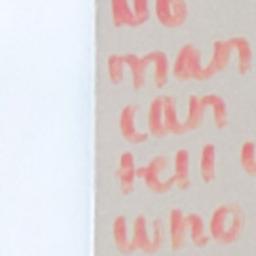 No
man
can
tell
who